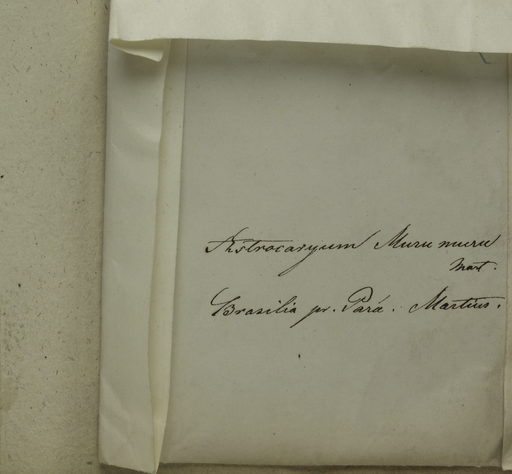 Astrocaryum Murumuru
Mart.
Brasilia pr. Pará. Martius.